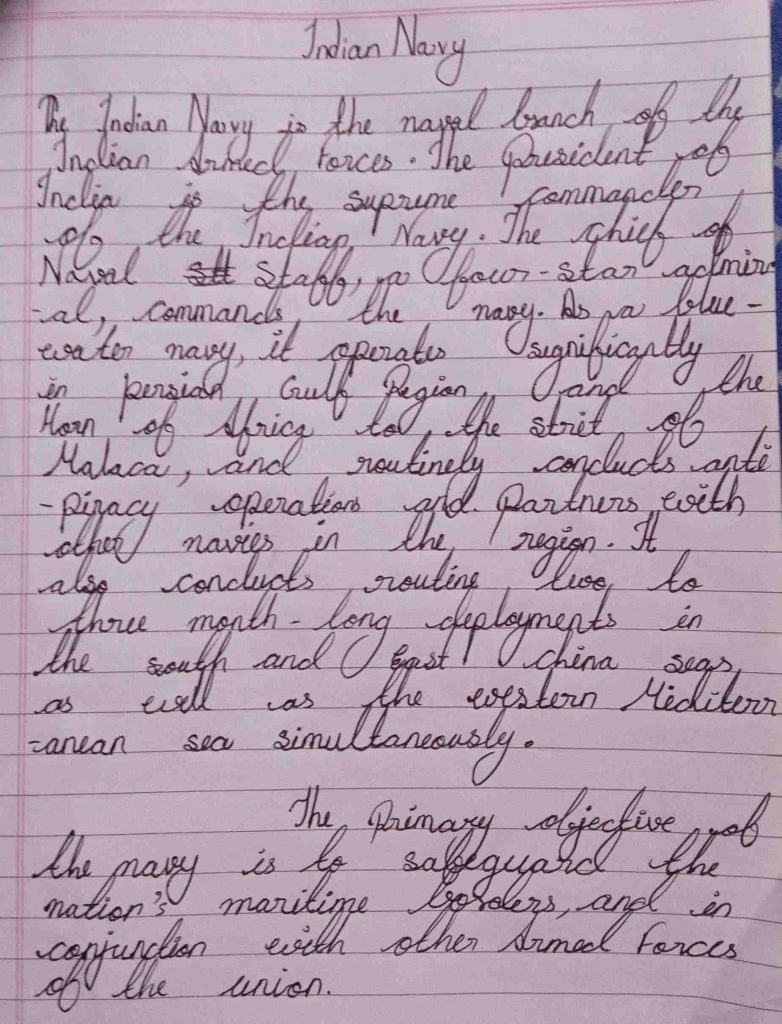 Indian Navy
The Indian Navy is the naval branch of the
Indian Armed Forces. The President of
India is the supreme commander
of the Indian Navy. The chief of
Naval Staff, a four-star admir
-al, commands the navy. As a blue-
water navy, it operates significantly
in persian Gulf Region and the
Horn of Africa to the strit of
Malaca, and routinely conducts anti
-piracy operations and Partners with
other navies in the region. It
also conducts routine two to
three month-long deployments in
the south and East china seas
as well as the western Mediterr
-anean sea simultaneously.
The Primary objective of
the navy is to safeguard the
nation's maritime borders, and in
conjunction with other Armed Forces
of the union.